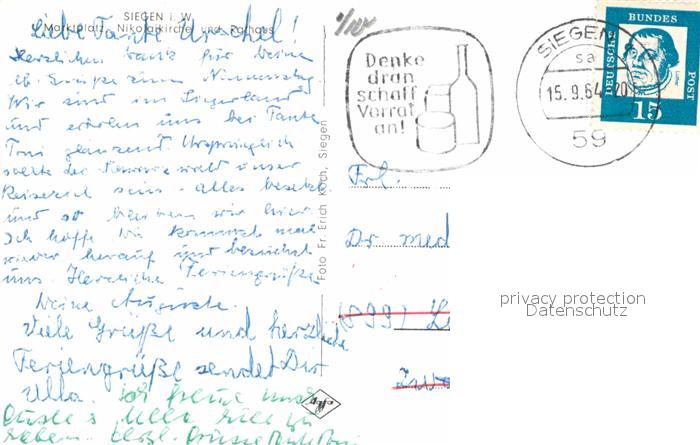 SIEGEN i. W.
Marktplatz Nikolaikirche und Rathaus
Liebe Tante Urschel!
Herzlichen Dank für Deine
lb. Grüße zum Namenstag.
Wir sind im Siegerland
und erholen uns bei Tante
Toni glänzend. Ursprünglich
sollte der unser
Reiseziel sein - alles besetzt
und so wir hier.
Ich hoffe Du kommst mal
wieder herauf und besuchst
uns. Herzliche Feriengrüße
Deine Auguste.
Viele Grüße und herzliche
Feriengrüße sendet Dir
Ulla. Ich freue mich
Guste & Ulla hier zu
haben. Herzl. Grüsse
Foto Fr. Erich Koch, Siegen
Denke
dran
schaff
Vorrat
an!
SIEGEN
sa
15.9.64-20
59
DEUTSCHE BUNDESPOST
Luther
15
Frl.
Dr med
(899)
privacy protection
Datenschutz